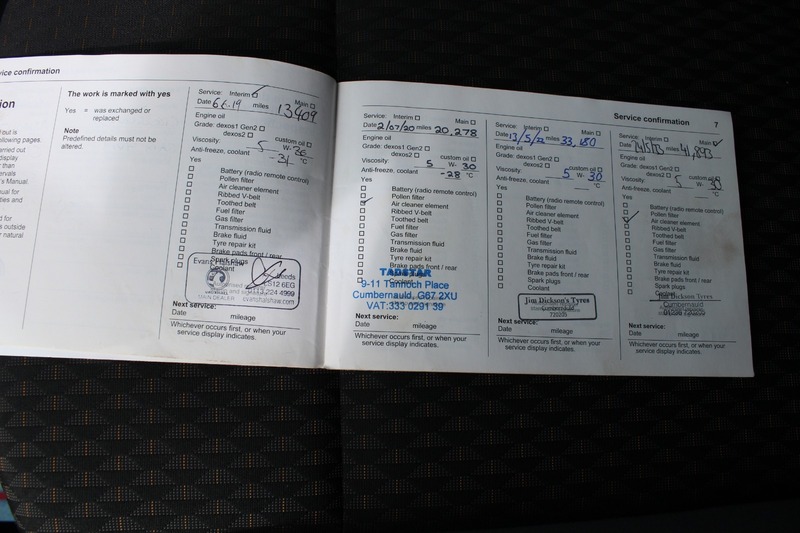 vice confirmation
ion
The work is marked with yes
Yes = was exchanged or
replaced
Note
Predefined details must not be
altered.
Service: Interim
Main
Date 6.6.19 miles 13409
Engine oil
Grade: dexos1 Gen2
dexos2
custom oil
Viscosity: 5 W-
Anti-freeze, coolant °C
Yes
Battery (radio remote control)
Pollen filter
Air cleaner element
Ribbed V-belt
Toothed belt
Fuel filter
Gas filter
Transmission fluid
Brake fluid
Tyre repair kit
Brake pads front / rear
Spark plugs
Coolant
LS12 6EG
0113 224 4999
MAIN DEALER
evanshalshaw.com
Next service:
Date mileage
Whichever occurs first, or when your
service display indicates.
Service: Interim Main
Date 2/07/20 miles 20,278
Engine oil
Grade: dexos1 Gen2
dexos2 custom oil
Viscosity: 5 W- 30
Anti-freeze, coolant -28 °C
Yes
Battery (radio remote control)
Pollen filter
Air cleaner element
Ribbed V-belt
Toothed belt
Fuel filter
Gas filter
Transmission fluid
Brake fluid
Tyre repair kit
Brake pads front / rear
TADSTAR
9-11 Tannoch Place
Cumbernauld, G67 2XU
VAT:333 0291 39
Next service:
Date mileage
Whichever occurs first, or when your
service display indicates.
Service confirmation 7
Service: Interim Main
Date 13/5/22 miles 33,180
Engine oil
Grade: dexos1 Gen2
dexos2 custom oil
Viscosity: 5 W- 30
Anti-freeze, coolant °C
Yes
Battery (radio remote control)
Pollen filter
Air cleaner element
Ribbed V-belt
Toothed belt
Fuel filter
Gas filter
Transmission fluid
Brake fluid
Tyre repair kit
Brake pads front / rear
Spark plugs
Jim Dickson's Tyres
Cumbernauld
720205
Next service:
Date mileage
Whichever occurs first, or when your
service display indicates.
Service: Interim Main
Date miles 41,893
Engine oil
Grade: dexos1 Gen2
dexos2 custom oil
Viscosity: 5 W- 30
Anti-freeze, coolant °C
Yes
Battery (radio remote control)
Pollen filter
Air cleaner element
Ribbed V-belt
Toothed belt
Fuel filter
Gas filter
Transmission fluid
Brake fluid
Tyre repair kit
Brake pads front / rear
Spark plugs
Coolant
Jim Dickson Tyres
Cumbernauld
01236 720205
Next service:
Date mileage
Whichever occurs first, or when your
service display indicates.